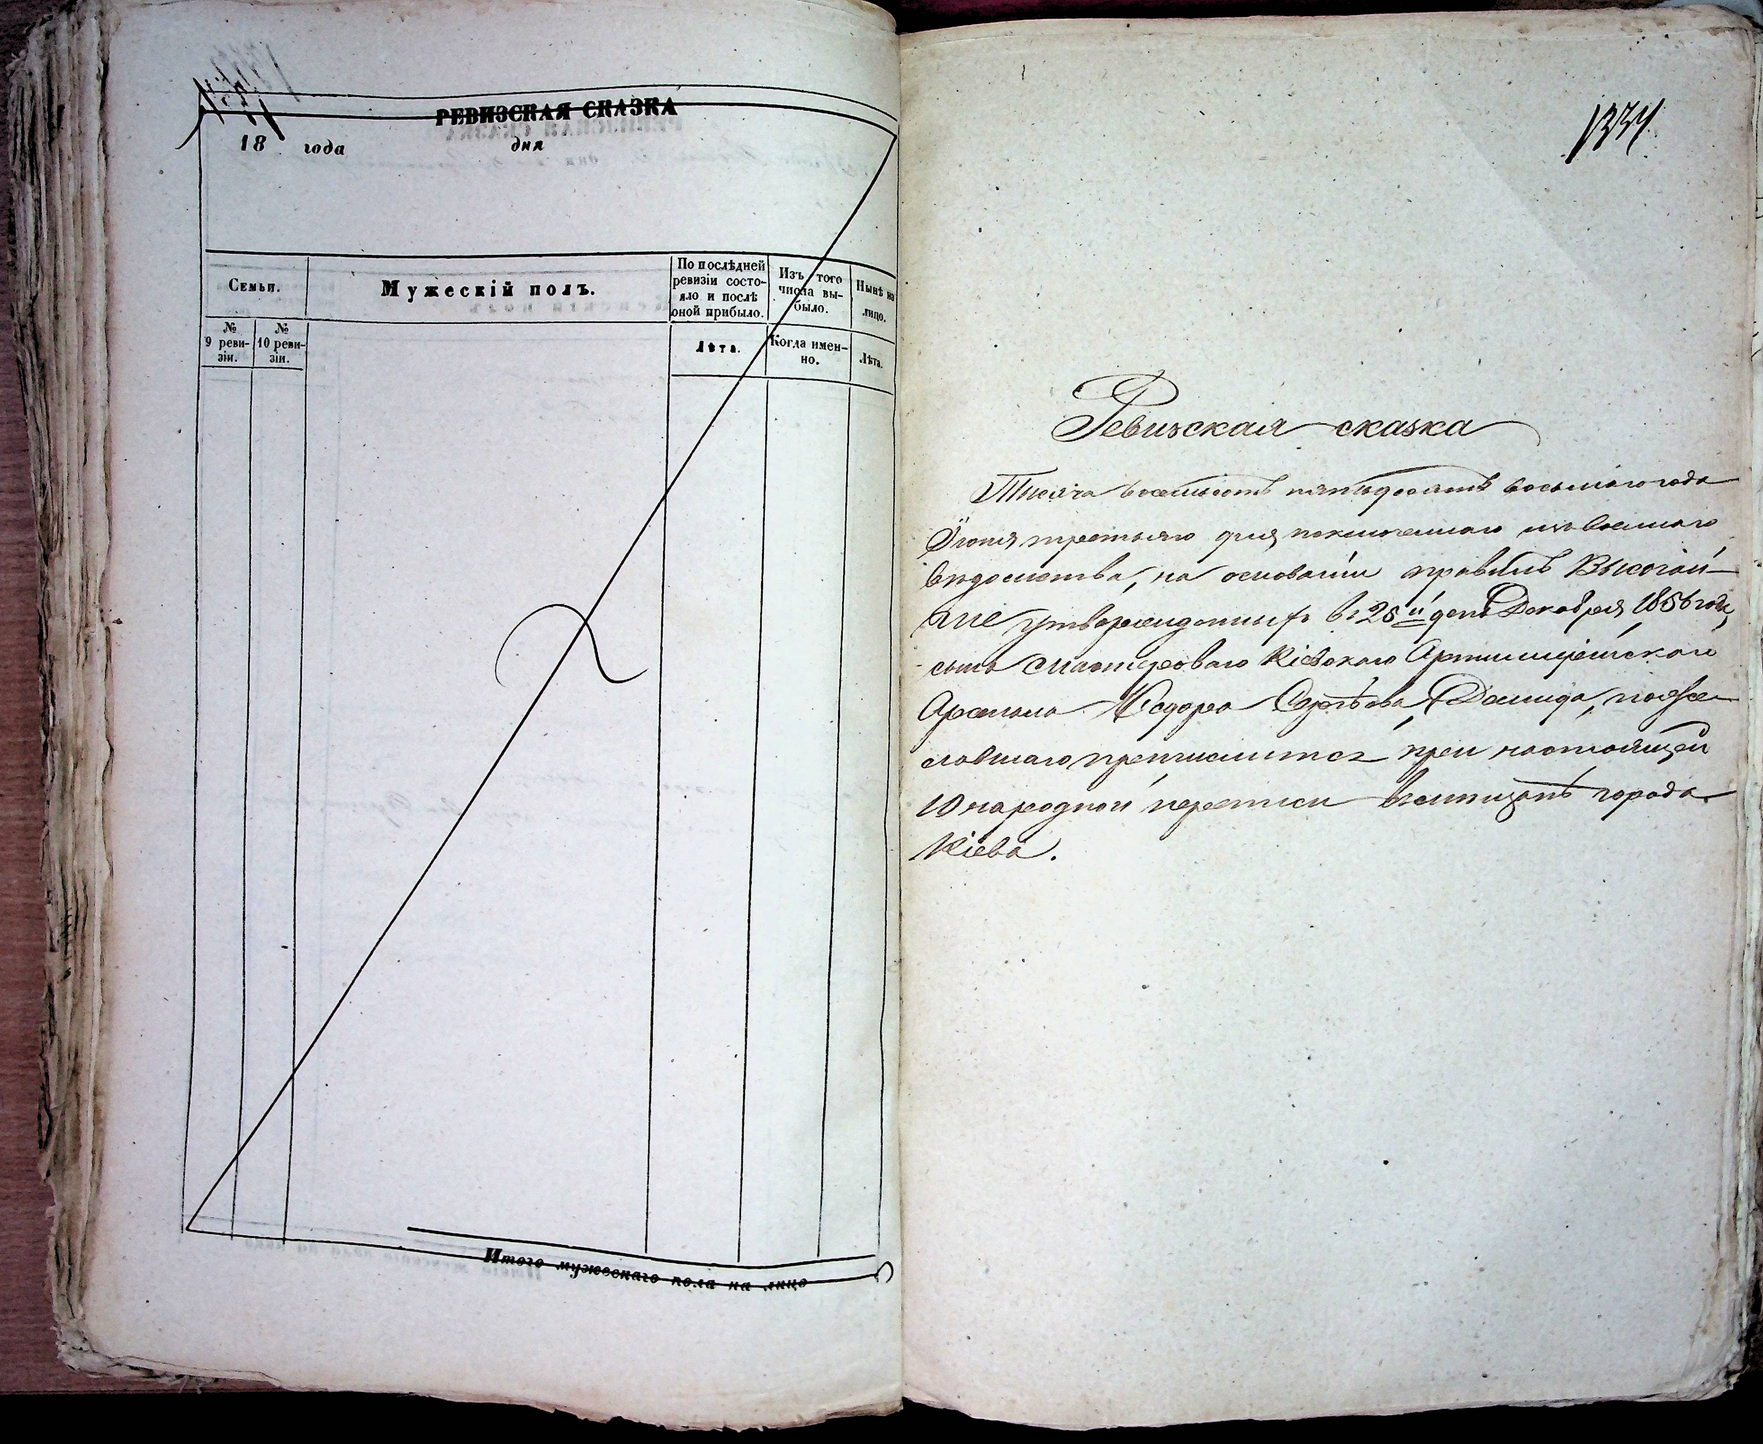 РЕВИЗСКАЯ СКАЗКА
18 года дня
Семьи.
Мужескій полъ.
По послѣдней ревизіи состояло и послѣ оной прибыло.
Изъ того числа выбыло.
Нынѣ на лицо.
№ 9 ревизіи.
№ 10 ревизіи.
Лѣта.
Когда именно.
Лѣта.
Итого мужескаго пола на лицо
1334
Ревизская сказка
Тысяча восемьсотъ пятьдесятъ восьмаго года
Іюня третьяго дня, исключеннаго изъ военнаго
вѣдомства, на основаніи правилъ Высочай-
ше утвержденныхъ въ 25й день Декабря 1856 года,
сына мастероваго Кіевскаго Артиллерійскаго
Арсенала Ѳедора Сергѣева Демида, поже-
лавшаго приписатся при настоящей
10 народной переписи въ мѣщане города
Кіева.